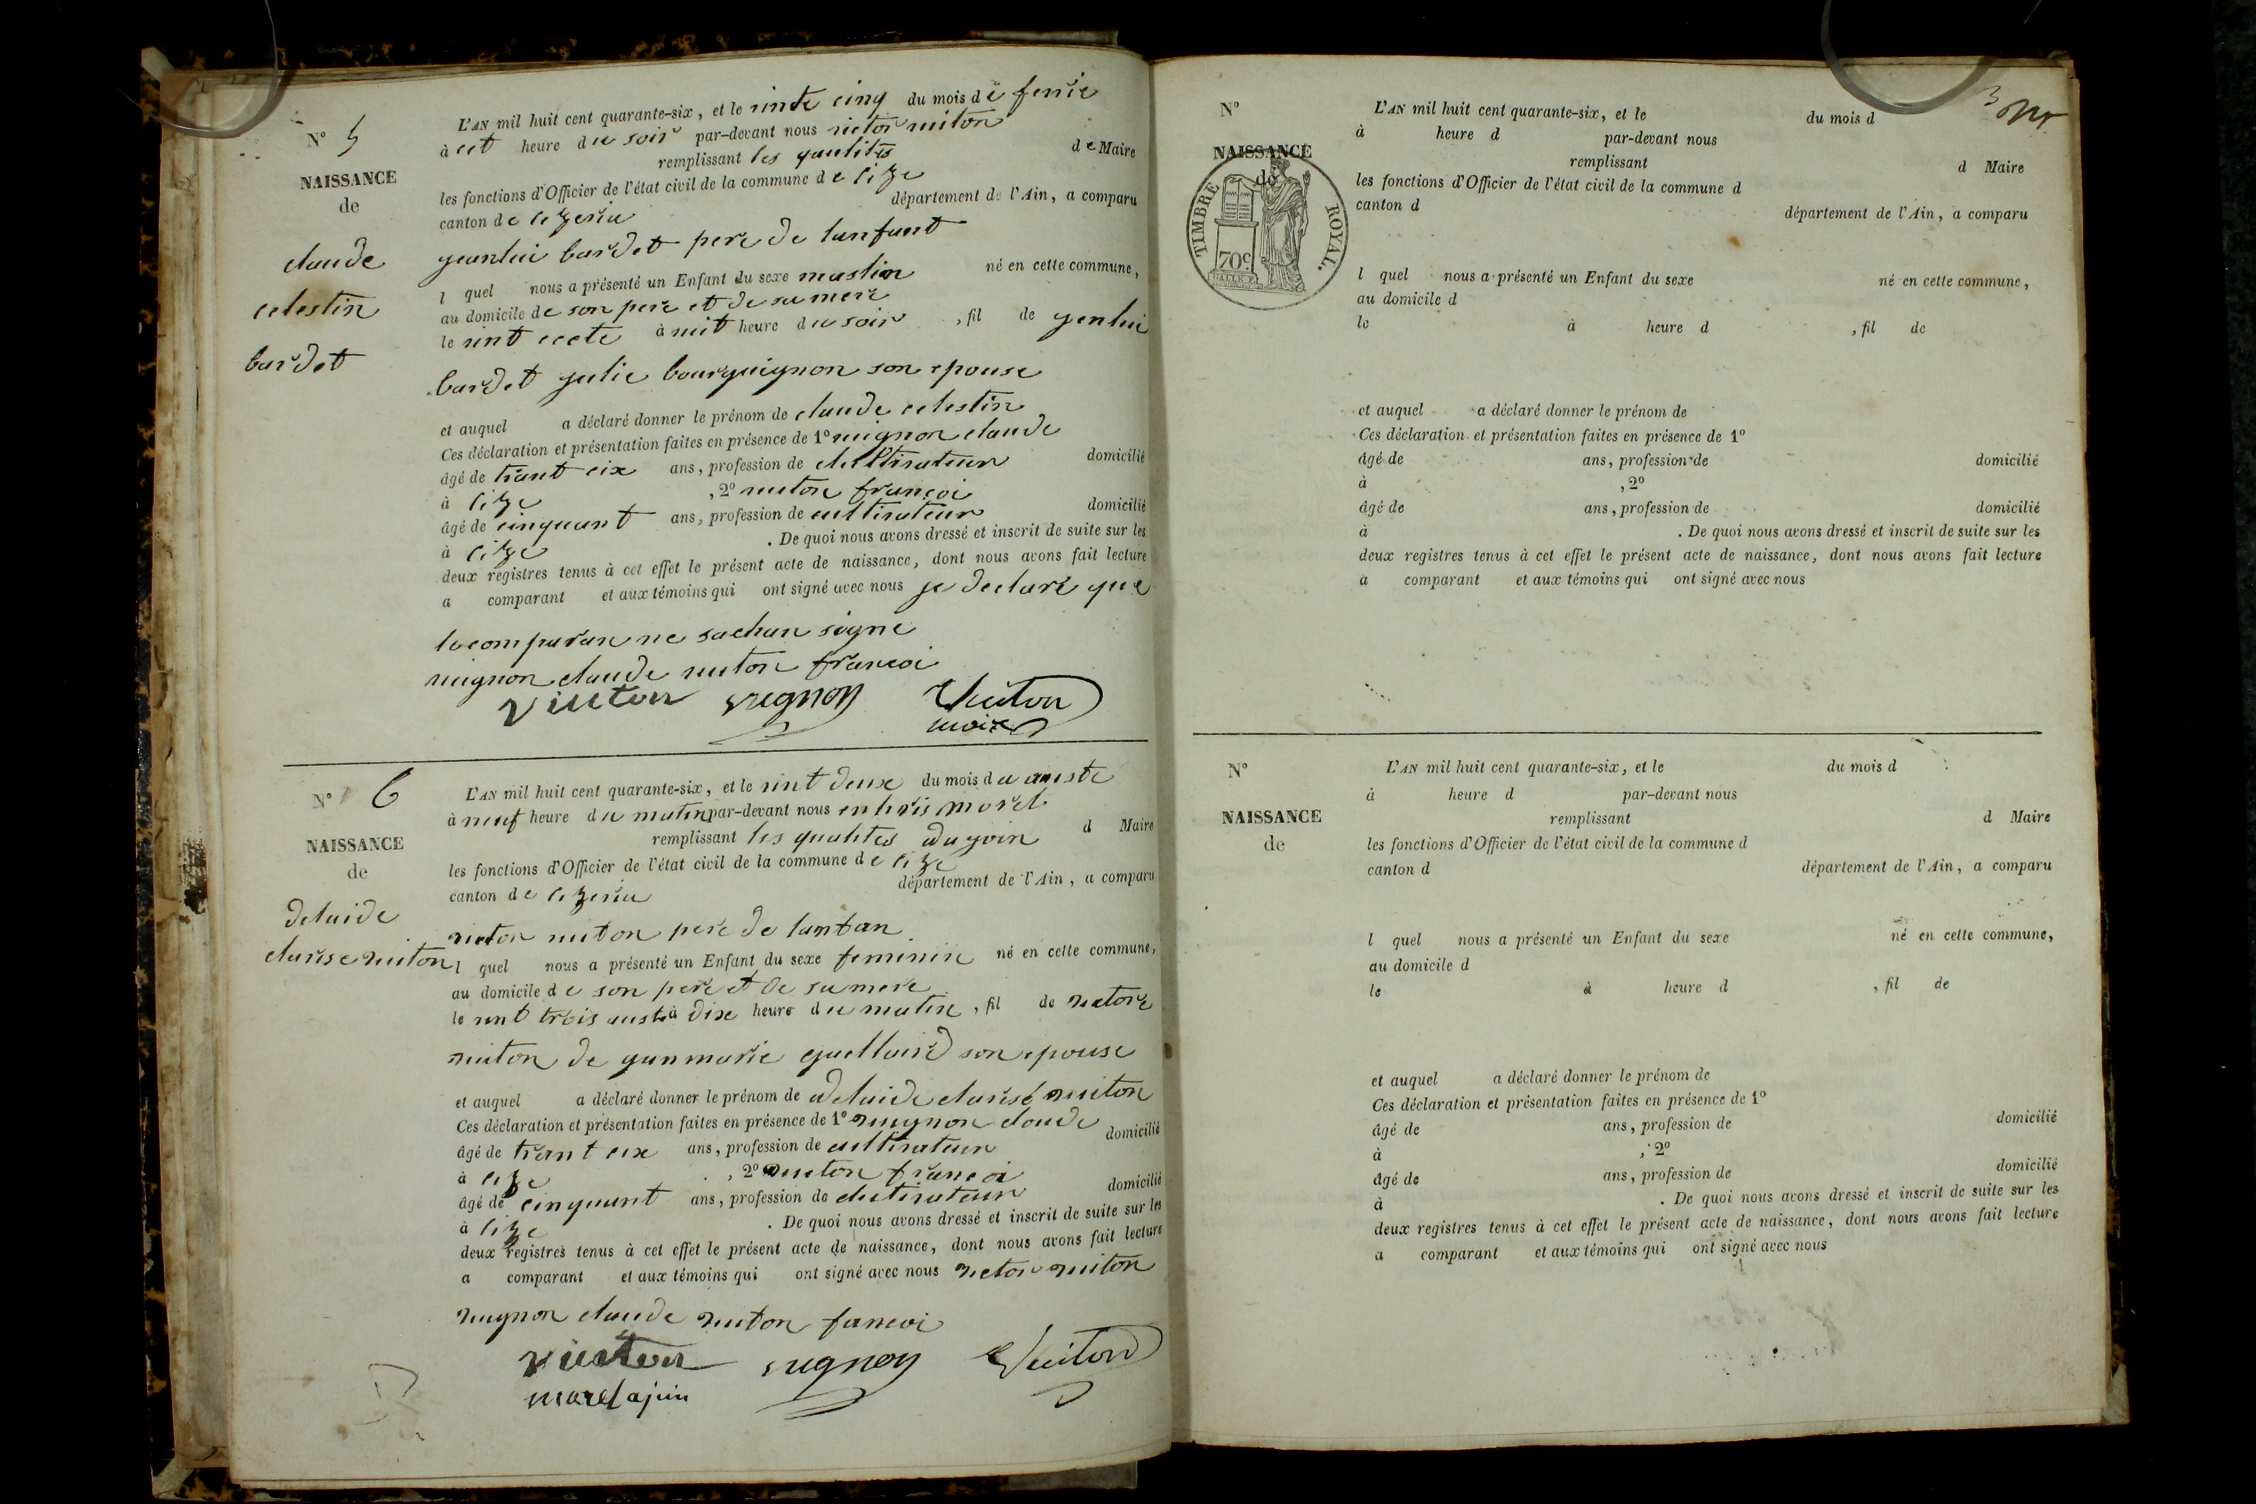 N° 5
NAISSANCE
de
claude
celestin
bardet
L'AN mil huit cent quarante-six, et le vinte cinq du mois de fevrie
à cet heure du soir par-devant nous victor viiton
remplissant les qualités de Maire
les fonctions d'Officier de l'état civil de la commune de cize
canton de cezeria département de l'Ain, a comparu
bardet pere de lanfant
l quel nous a présenté un Enfant du sexe maslin né en cette commune,
au domicile de son pere et de sa mere
le vint à uit heure du soir, fil de
bardet julie bourguignon son epouse
et auquel a déclaré donner le prénom de claude celestin
Ces déclaration et présentation faites en présence de 1° claude
âgé de trant cix ans, profession de domicilié
à cize, 2° françoi
âgé de cinquant ans, profession de cultivateur domicilié
à cize. De quoi nous avons dressé et inscrit de suite sur les
deux registres tenus à cet effet le présent acte de naissance, dont nous avons fait lecture
a comparant et aux témoins qui ont signé avec nous je declare que
le comparan ne sachan signe
claude francoi
maire
N° 6
NAISSANCE
de
delaide
clarise viiton
L'AN mil huit cent quarante-six, et le vint deux du mois du
à neuf heure du matin par-devant nous morel
remplissant les qualites d Maire
les fonctions d'Officier de l'état civil de la commune de cize
canton de cezeria département de l'Ain, a comparu
victor viiton pere de lanfan
l quel nous a présenté un Enfant du sexe feminin né en cette commune,
au domicile de son pere et de sa mere
le vint trois à dix heure du matin, fil de
viiton de son epouse
et auquel a déclaré donner le prénom de adelaide clarise viiton
Ces déclaration et présentation faites en présence de 1° claude
âgé de trant cix ans, profession de cultivateur domicilié
à cize, 2° viiton francoi
âgé de cinquant ans, profession de domicilié
à cize. De quoi nous avons dressé et inscrit de suite sur les
deux registres tenus à cet effet le présent acte de naissance, dont nous avons fait lecture
a comparant et aux témoins qui ont signé avec nous victor viiton
claude viiton
morel
N°
NAISSANCE
de
TIMBRE ROYAL.
70c
L'AN mil huit cent quarante-six, et le du mois d
à heure d par-devant nous
remplissant d Maire
les fonctions d'Officier de l'état civil de la commune d
canton d département de l'Ain, a comparu
l quel nous a présenté un Enfant du sexe né en cette commune,
au domicile d
le à heure d, fil de
et auquel a déclaré donner le prénom de
Ces déclaration et présentation faites en présence de 1°
âgé de ans, profession de domicilié
à, 2°
âgé de ans, profession de domicilié
à. De quoi nous avons dressé et inscrit de suite sur les
deux registres tenus à cet effet le présent acte de naissance, dont nous avons fait lecture
a comparant et aux témoins qui ont signé avec nous
N°
NAISSANCE
de
L'AN mil huit cent quarante-six, et le du mois d
à heure d par-devant nous
remplissant d Maire
les fonctions d'Officier de l'état civil de la commune d
canton d département de l'Ain, a comparu
l quel nous a présenté un Enfant du sexe né en cette commune,
au domicile d
le à heure d, fil de
et auquel a déclaré donner le prénom de
Ces déclaration et présentation faites en présence de 1°
âgé de ans, profession de domicilié
à, 2°
âgé de ans, profession de domicilié
à. De quoi nous avons dressé et inscrit de suite sur les
deux registres tenus à cet effet le présent acte de naissance, dont nous avons fait lecture
a comparant et aux témoins qui ont signé avec nous